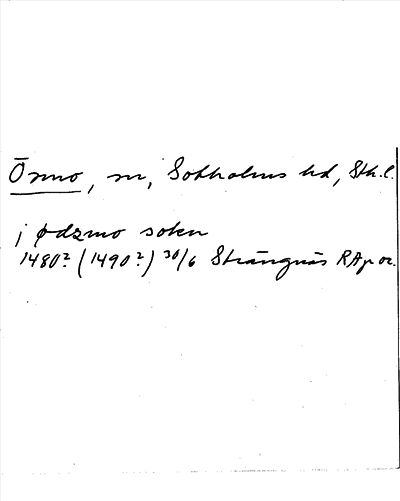 Ösmo, sn, Sotholms hd, Sth.l.
i ødzmo soken
1480? (1490?) 30/6 Strängnäs RAp or.